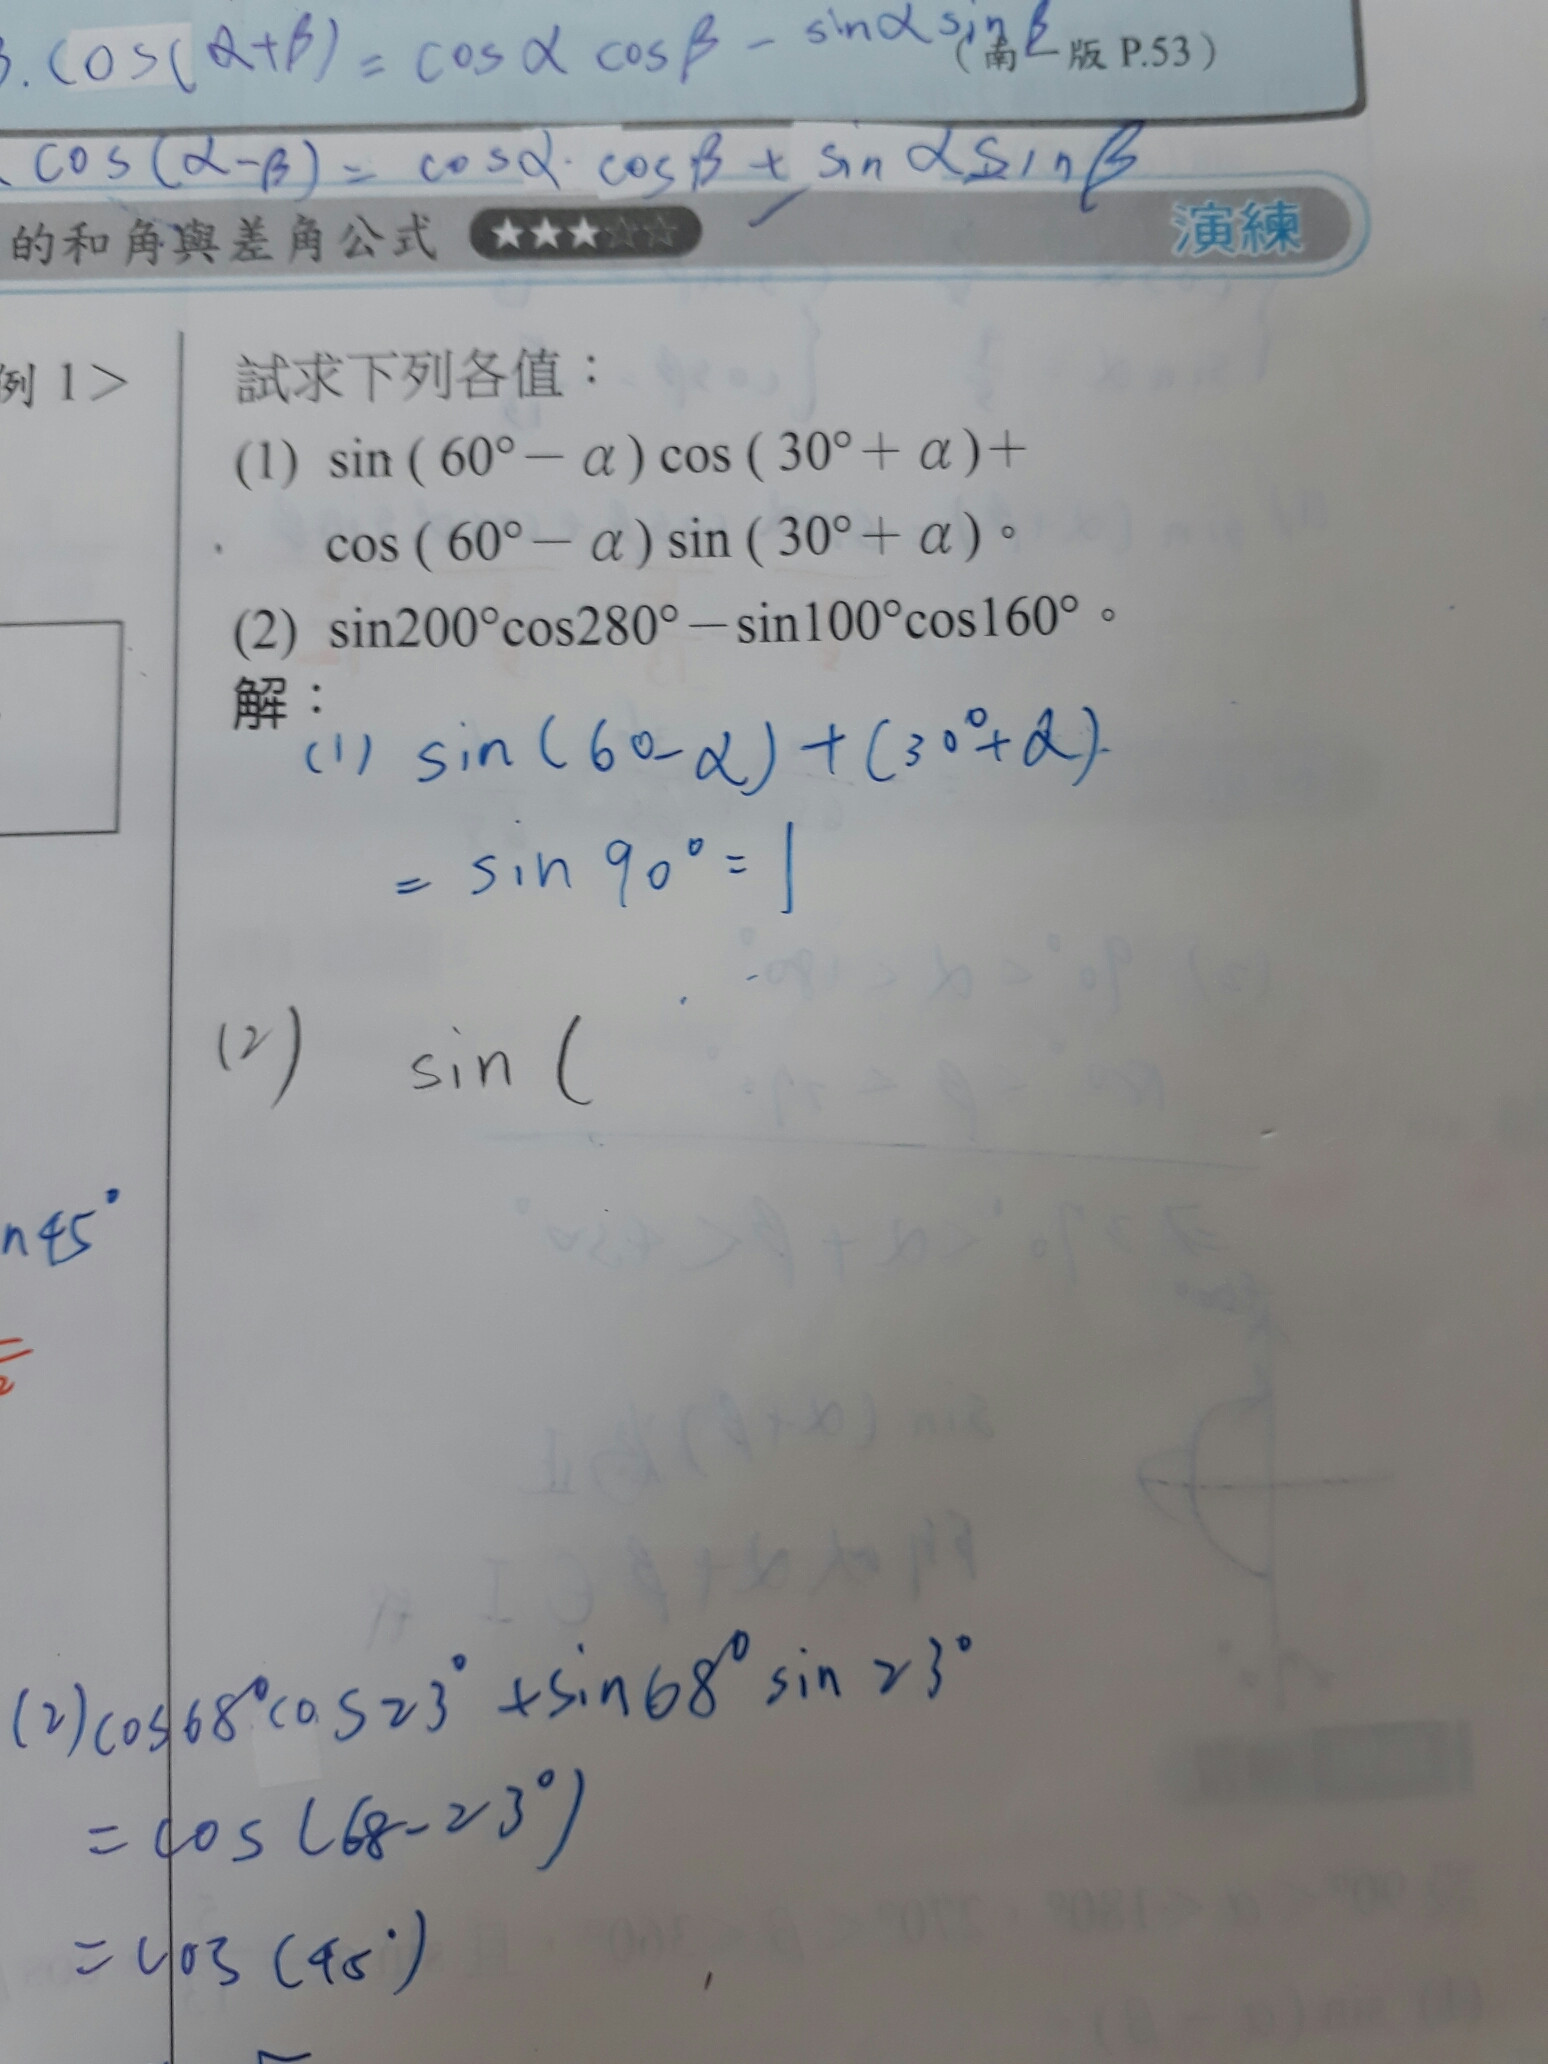 3. cos(α+β) = cosα cosβ - sinα sinβ
(南 版 P.53)
cos(α-β) = cosα·cosβ + sinα sinβ
的和角與差角公式 ★★★☆☆ 演練
例 1>
試求下列各值：
(1) sin ( 60°－α ) cos ( 30°＋α )＋
cos ( 60°－α ) sin ( 30°＋α )。
(2) sin200°cos280°－sin100°cos160°。
解：
(1) sin(60-α)+(30°+α)
= sin 90° = 1
(2) sin (
n45°
(2) cos68°cos23° +sin68° sin 23°
= cos (68-23°)
= cos (45°)